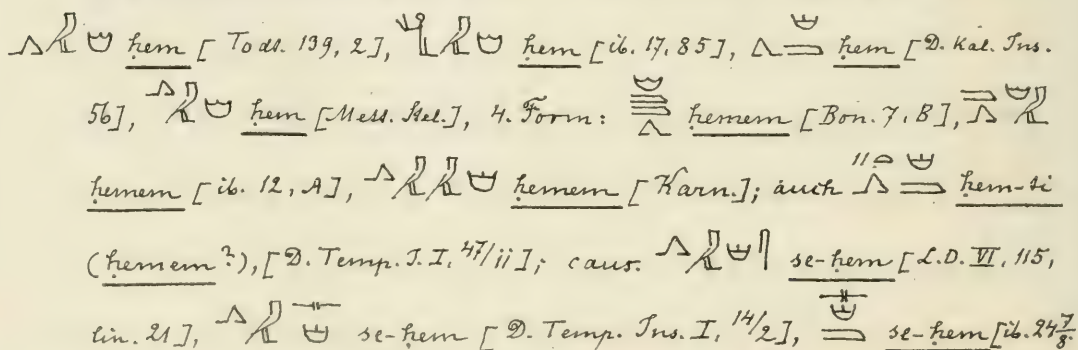 ḥem [Todt. 139, 2], ḥem [ib. 17, 85], ḥem [D. Kal. Ins.
56], ḥem [Mess. Stel.], 4. Form: ḥemem [Bon. 7, B],
ḥemem [ib. 12, A], ḥemem [Karn.]; auch ḥem-ti
(ḥemem?), [D. Temp. J. I, 47/ii]; caus. se-ḥem [L.D. VI, 115,
lin. 21], se-ḥem [D. Temp. Ins. I, 14/2], se-ḥem [ib. 24 7/8.